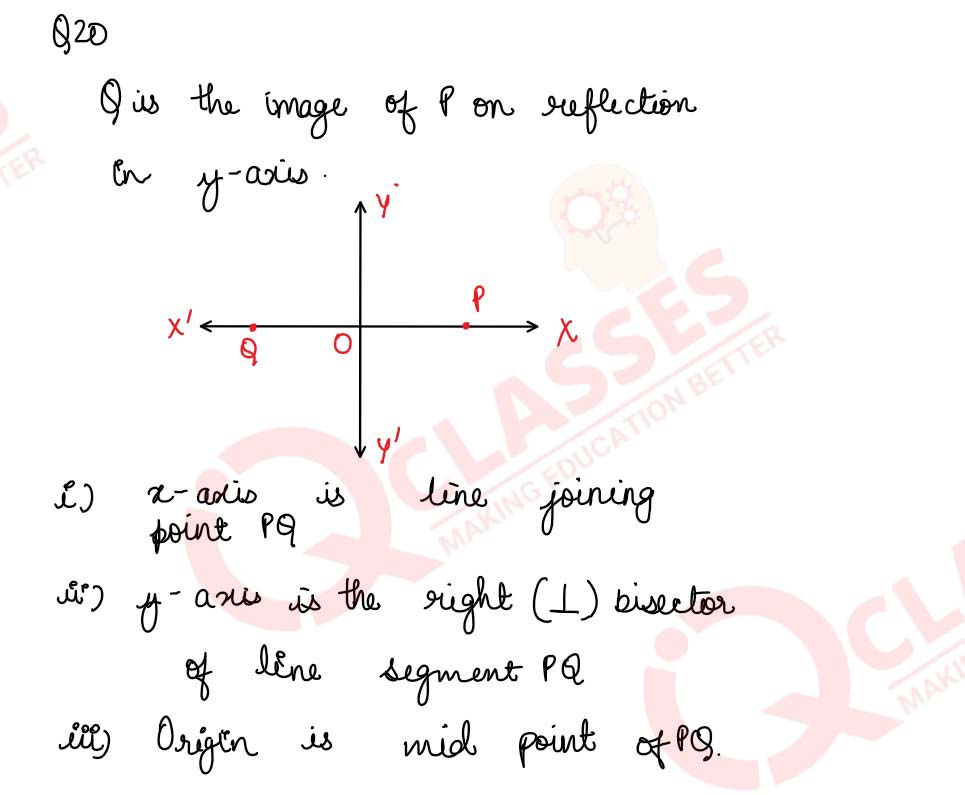 Q20
Q is the image of P on reflection
in y-axis.
Y
P
X' Q O X
Y'
i) x-axis is line joining
point PQ
ii) y-axis is the right (⊥) bisector
of line segment PQ
iii) Origin is mid point of PQ.
TER
CLASSES
MAKING EDUCATION BETTER
CLA
MAKIN